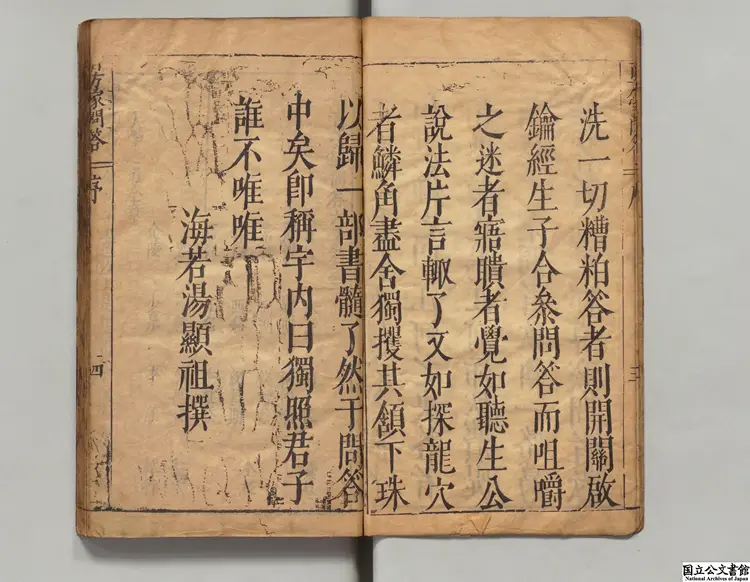 洗一切糟粕答者則開關啟
鑰經生子合叅問答而咀嚼
之迷者寤聵者覺如聽生公
說法片言輙了又如探龍穴
者鱗角盡舍獨攫其頷下珠
以歸一部書髓了然于問答
中矣卽稱宇內曰獨照君子
誰不唯唯
海若湯顯祖撰
家問答
序
四
国立公文書館
National Archives of Japan